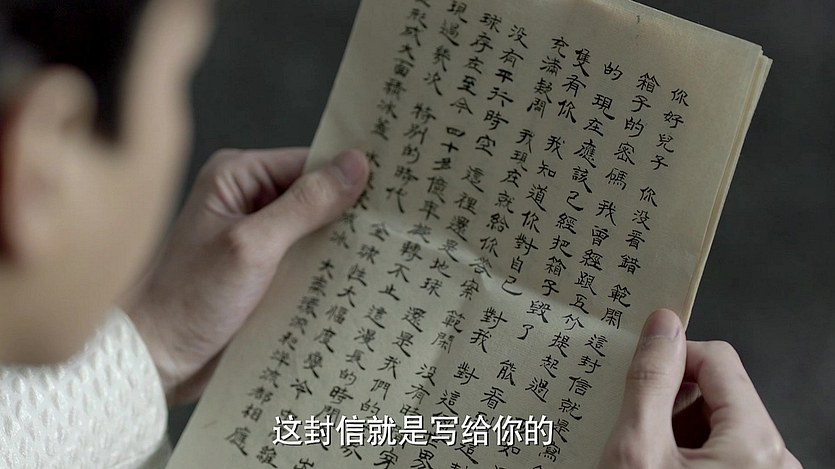 你好兒子 你没看錯 範閑 這封信就是寫
箱子的密碼 我曾經跟五竹提起過
的 現在應該已經把箱子毀了 能看
隻有你 我知道你對自己 對我 對這
充滿疑問 我現在就給你答案 範閑 没有時
没有平行時空 這裡還是地球 還是我們的
球存在至今 四十多億年 旋轉不止 這漫長的時間
現過幾次 特別的時代 全球性大幅度變冷
形成大面積冰蓋
这封信就是写给你的